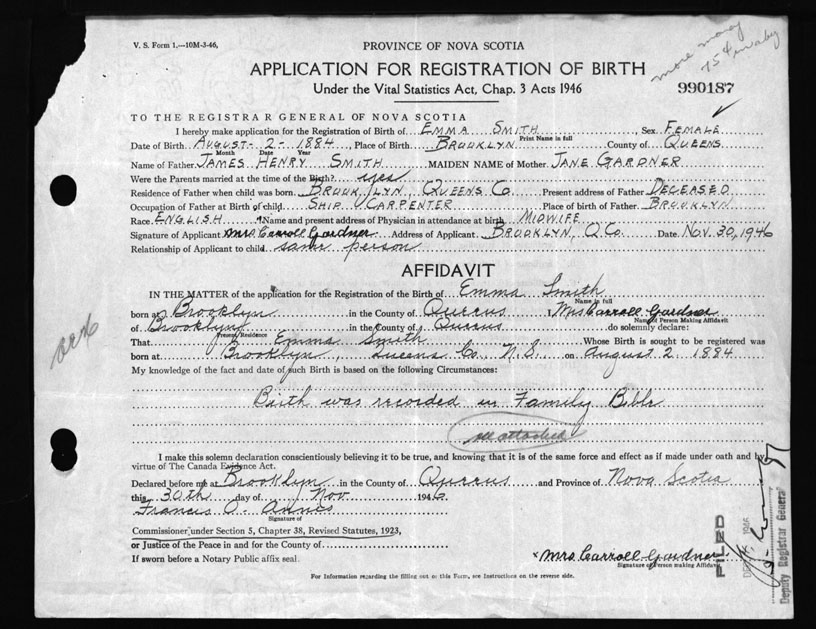 V. S. Form 1.—10M-3-46,
PROVINCE OF NOVA SCOTIA
more money
75¢ in aby
APPLICATION FOR REGISTRATION OF BIRTH
Under the Vital Statistics Act, Chap. 3 Acts 1946
990187
TO THE REGISTRAR GENERAL OF NOVA SCOTIA
I hereby make application for the Registration of Birth of EMMA SMITH, Sex FEMALE
Print Name in full
Date of Birth AUGUST - 2 - 1884, Place of Birth BROOKLYN County of QUEENS
Month Date Year
Name of Father JAMES HENRY SMITH MAIDEN NAME of Mother JANE GARDNER
Were the Parents married at the time of the Birth? yes
Residence of Father when child was born BROOKLYN QUEENS CO Present address of Father DECEASED
Occupation of Father at Birth of child SHIP CARPENTER Place of birth of Father BROOKLYN
Race ENGLISH Name and present address of Physician in attendance at birth MIDWIFE
Signature of Applicant Mrs Carroll Gardner Address of Applicant BROOKLYN, Q.CO. Date NOV. 30, 1946
Relationship of Applicant to child same person
AFFIDAVIT
IN THE MATTER of the application for the Registration of the Birth of Emma Smith
Name in full
born at Brooklyn in the County of Queens I Mrs Carroll Gardner
Name of Person Making Affidavit
of Brooklyn in the County of Queens do solemnly declare:
Present Residence
That Emma Smith Whose Birth is sought to be registered was
born at Brooklyn, Queens Co. N.S. on August 2 1884
My knowledge of the fact and date of such Birth is based on the following Circumstances:
Birth was recorded in Family Bible
see attached
I make this solemn declaration conscientiously believing it to be true, and knowing that it is of the same force and effect as if made under oath and by
virtue of The Canada Evidence Act.
Declared before me at Brooklyn in the County of Queens and Province of Nova Scotia
this 30th day of Nov 1946
Francis O. Annis
Signature of
Commissioner under Section 5, Chapter 38, Revised Statutes, 1923,
or Justice of the Peace in and for the County of
If sworn before a Notary Public affix seal.
x Mrs Carroll Gardner
Signature of Person making Affidavit
For Information regarding the filling out of this Form, see Instructions on the reverse side.
FILED
1946
Deputy Registrar General